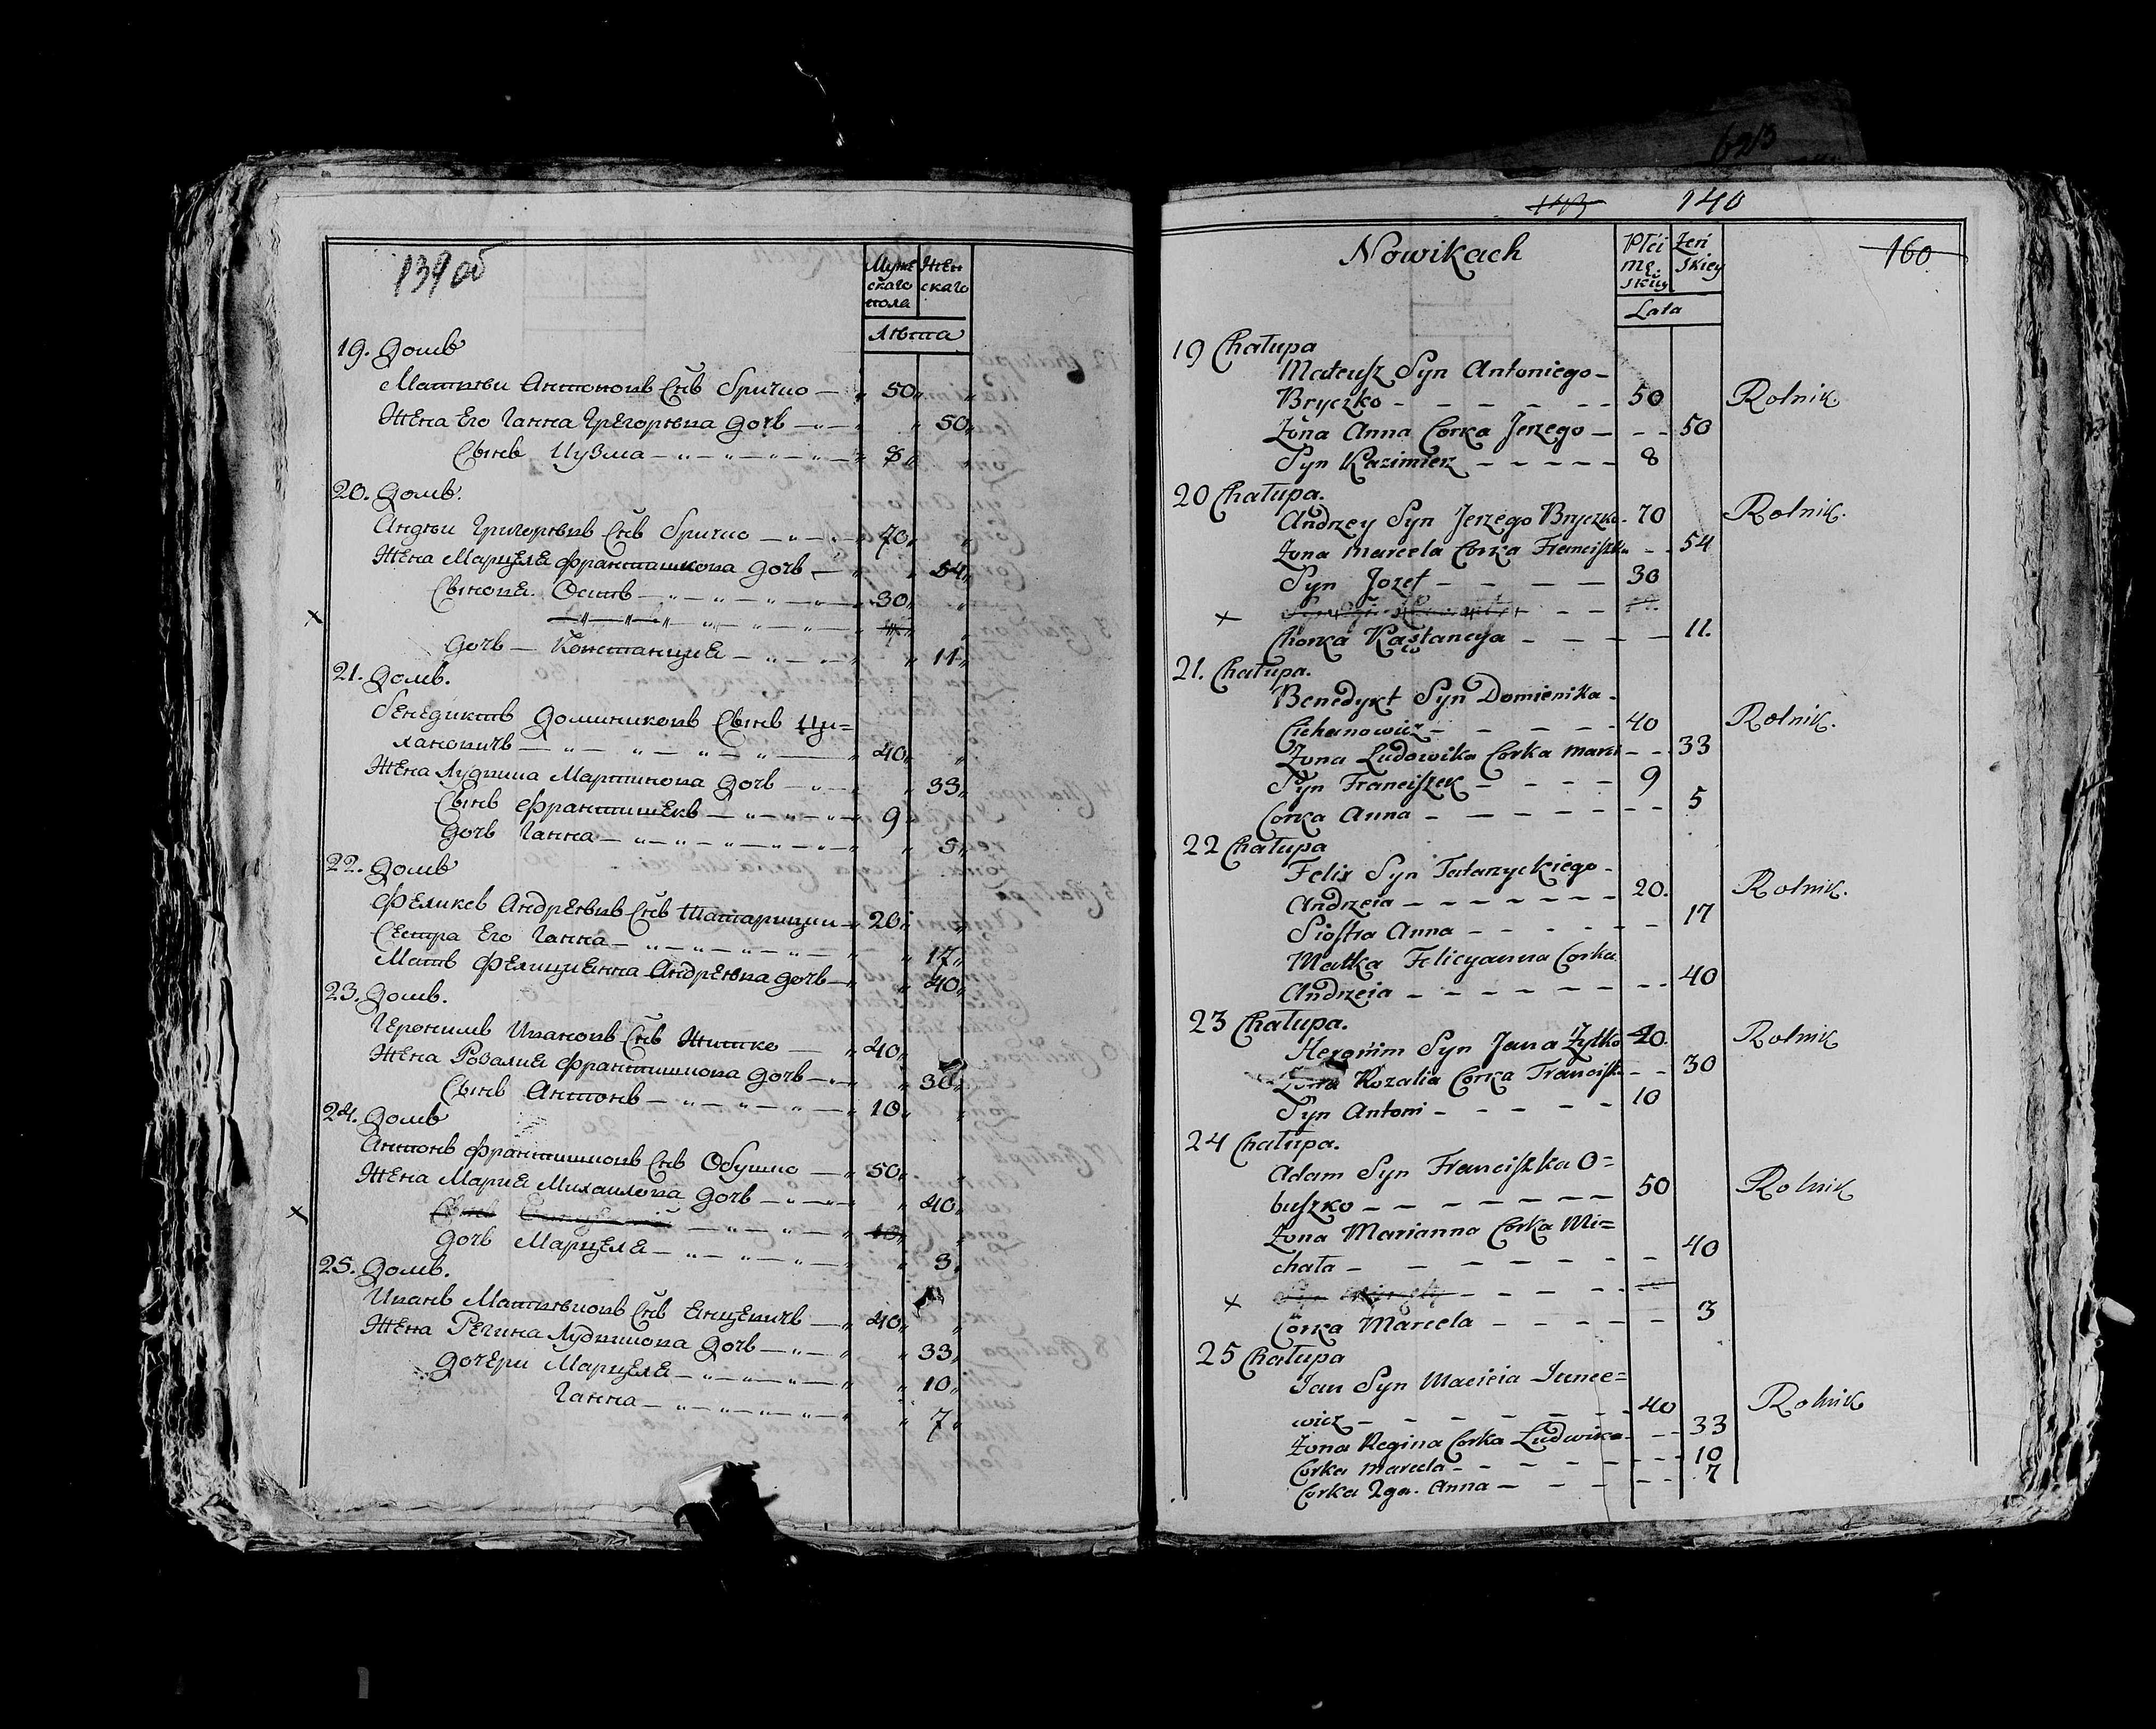 139 об
Мужескаго пола
Женскаго
Лѣта
19. Домъ
Матвѣи Антоновъ Снъ Бричко 50
Жена Его Ганна Григорьева дочь 50
Сынъ 8
20. Домъ.
Андреи Григорьевъ Снъ Бричко 70
Жена Марцеля Франташкова дочь 54
Сыновя. Осипъ 30
Дочь Констанция 11
21. Домъ.
Бенедиктъ Доминиковъ Сынъ Ци=
хановичъ 40
Жена Лудвика Мартинова дочь 33
Сынъ Франтишекъ 9
Дочь Ганна 5
22. Домъ
Феликсъ Андреевъ Снъ Татарицки 20
Сестра Его Ганна 17
Мать Фелициянна Андреева дочь 40
23. Домъ.
Геронимъ Ивановъ Снъ Житко 40
Жена Розалия Франтишкова дочь 30
Сынъ Антонъ 10
24. Домъ
Антонъ Франтишковъ Снъ Обушко 50
Жена Мария Михаилова дочь 40
Сынъ 10
Дочь Марцеля 3
25. Домъ.
Иванъ Матвѣиовъ Снъ Енцевичъ 40
Жена Регина Лудвикова дочь 33
Дочери Марцеля 10
Ганна 7
613
143 140
Nowikach
Płci Męskiey
Żeńskiey
Lata
160
19 Chałupa
Mateusz Syn Antoniego
Bryczko 50 Rolnik
Żona Anna Corka Jerzego 50
Syn Kazimierz 8
20 Chałupa.
Andrzey Syn Jerzego Bryczko 70 Rolnik.
Żona Marcela Corka Franciszka 54
Syn Jozef 30
x
Chorka Kastancya 11.
21. Chałupa.
Benedykt Syn Domienika
Ciehanowicz 40 Rolnik.
Żona Ludowika Corka Marci 33
Syn Franciszek 9
Corka Anna 5
22 Chałupa
Felix Syn Tatarzyckiego
Andrzeia 20. Rolnik.
Siostra Anna 17
Matka Felicyanna Corka
Andrzeia 40
23 Chałupa.
Heronim Syn Jana Żytko 40. Rolnik
Żona Rozalia Corka Francisz 30
Syn Antoni 10
24 Chałupa.
Adam Syn Franciszka O=
buszko 50 Rolnik
Żona Marianna Corka Mi=
chała 40
x Syn
Corka Marcela 3
25 Chałupa
Jan Syn Macieia Iunce=
wicz 40 Rolnik
Żona Regina Corka Ludwika 33
Corka Marcela 10
Corka 2ga. Anna 7